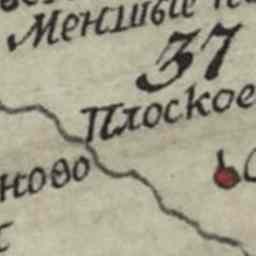 Меншые
37
Плоское
ново